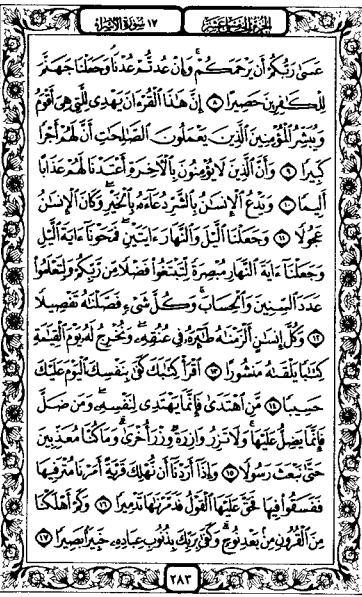 الجزء الخامس عشر
١٧ سورة الإسراء
عَسَىٰ رَبُّكُمْ أَن يَرْحَمَكُمْ ۚ وَإِنْ عُدتُّمْ عُدْنَا ۘ وَجَعَلْنَا جَهَنَّمَ
لِلْكَٰفِرِينَ حَصِيرًا ٨ إِنَّ هَٰذَا ٱلْقُرْءَانَ يَهْدِى لِلَّتِى هِىَ أَقْوَمُ
وَيُبَشِّرُ ٱلْمُؤْمِنِينَ ٱلَّذِينَ يَعْمَلُونَ ٱلصَّٰلِحَٰتِ أَنَّ لَهُمْ أَجْرًا
كَبِيرًا ٩ وَأَنَّ ٱلَّذِينَ لَا يُؤْمِنُونَ بِٱلْءَاخِرَةِ أَعْتَدْنَا لَهُمْ عَذَابًا
أَلِيمًا ١٠ وَيَدْعُ ٱلْإِنسَٰنُ بِٱلشَّرِّ دُعَآءَهُۥ بِٱلْخَيْرِ ۖ وَكَانَ ٱلْإِنسَٰنُ
عَجُولًا ١١ وَجَعَلْنَا ٱلَّيْلَ وَٱلنَّهَارَ ءَايَتَيْنِ ۖ فَمَحَوْنَآ ءَايَةَ ٱلَّيْلِ
وَجَعَلْنَآ ءَايَةَ ٱلنَّهَارِ مُبْصِرَةً لِّتَبْتَغُوا۟ فَضْلًا مِّن رَّبِّكُمْ وَلِتَعْلَمُوا۟
عَدَدَ ٱلسِّنِينَ وَٱلْحِسَابَ ۚ وَكُلَّ شَىْءٍ فَصَّلْنَٰهُ تَفْصِيلًا
١٢ وَكُلَّ إِنسَٰنٍ أَلْزَمْنَٰهُ طَٰٓئِرَهُۥ فِى عُنُقِهِۦ ۖ وَنُخْرِجُ لَهُۥ يَوْمَ ٱلْقِيَٰمَةِ
كِتَٰبًا يَلْقَىٰهُ مَنشُورًا ١٣ ٱقْرَأْ كِتَٰبَكَ كَفَىٰ بِنَفْسِكَ ٱلْيَوْمَ عَلَيْكَ
حَسِيبًا ١٤ مَّنِ ٱهْتَدَىٰ فَإِنَّمَا يَهْتَدِى لِنَفْسِهِۦ ۖ وَمَن ضَلَّ
فَإِنَّمَا يَضِلُّ عَلَيْهَا ۚ وَلَا تَزِرُ وَازِرَةٌ وِزْرَ أُخْرَىٰ ۗ وَمَا كُنَّا مُعَذِّبِينَ
حَتَّىٰ نَبْعَثَ رَسُولًا ١٥ وَإِذَآ أَرَدْنَآ أَن نُّهْلِكَ قَرْيَةً أَمَرْنَا مُتْرَفِيهَا
فَفَسَقُوا۟ فِيهَا فَحَقَّ عَلَيْهَا ٱلْقَوْلُ فَدَمَّرْنَٰهَا تَدْمِيرًا ١٦ وَكَمْ أَهْلَكْنَا
مِنَ ٱلْقُرُونِ مِنۢ بَعْدِ نُوحٍ ۗ وَكَفَىٰ بِرَبِّكَ بِذُنُوبِ عِبَادِهِۦ خَبِيرًۢا بَصِيرًا ١٧
٢٨٣